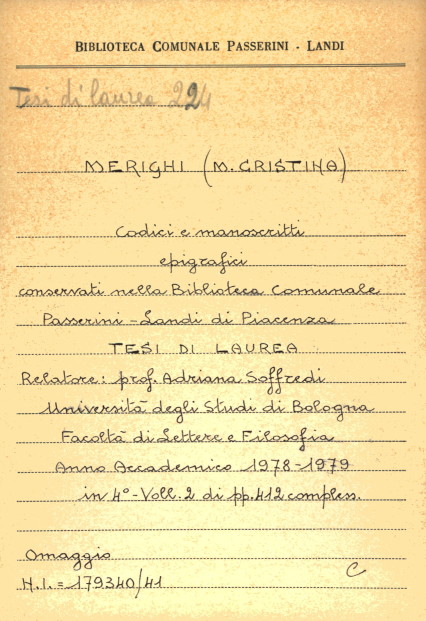 BIBLIOTECA COMUNALE PASSERINI - LANDI
Tesi di laurea 224
MERIGHI (M. CRISTINA)
Codici e manoscritti
epigrafici
conservati nella Biblioteca Comunale
Passerini-Landi di Piacenza
TESI DI LAUREA
Relatore: prof. Adriana Soffredi
Università degli Studi di Bologna
Facoltà di Lettere e Filosofia
Anno Accademico 1978-1979
in 4°-Voll. 2 di pp. 412 compless.
Omaggio
N.I. = 179340/41
C